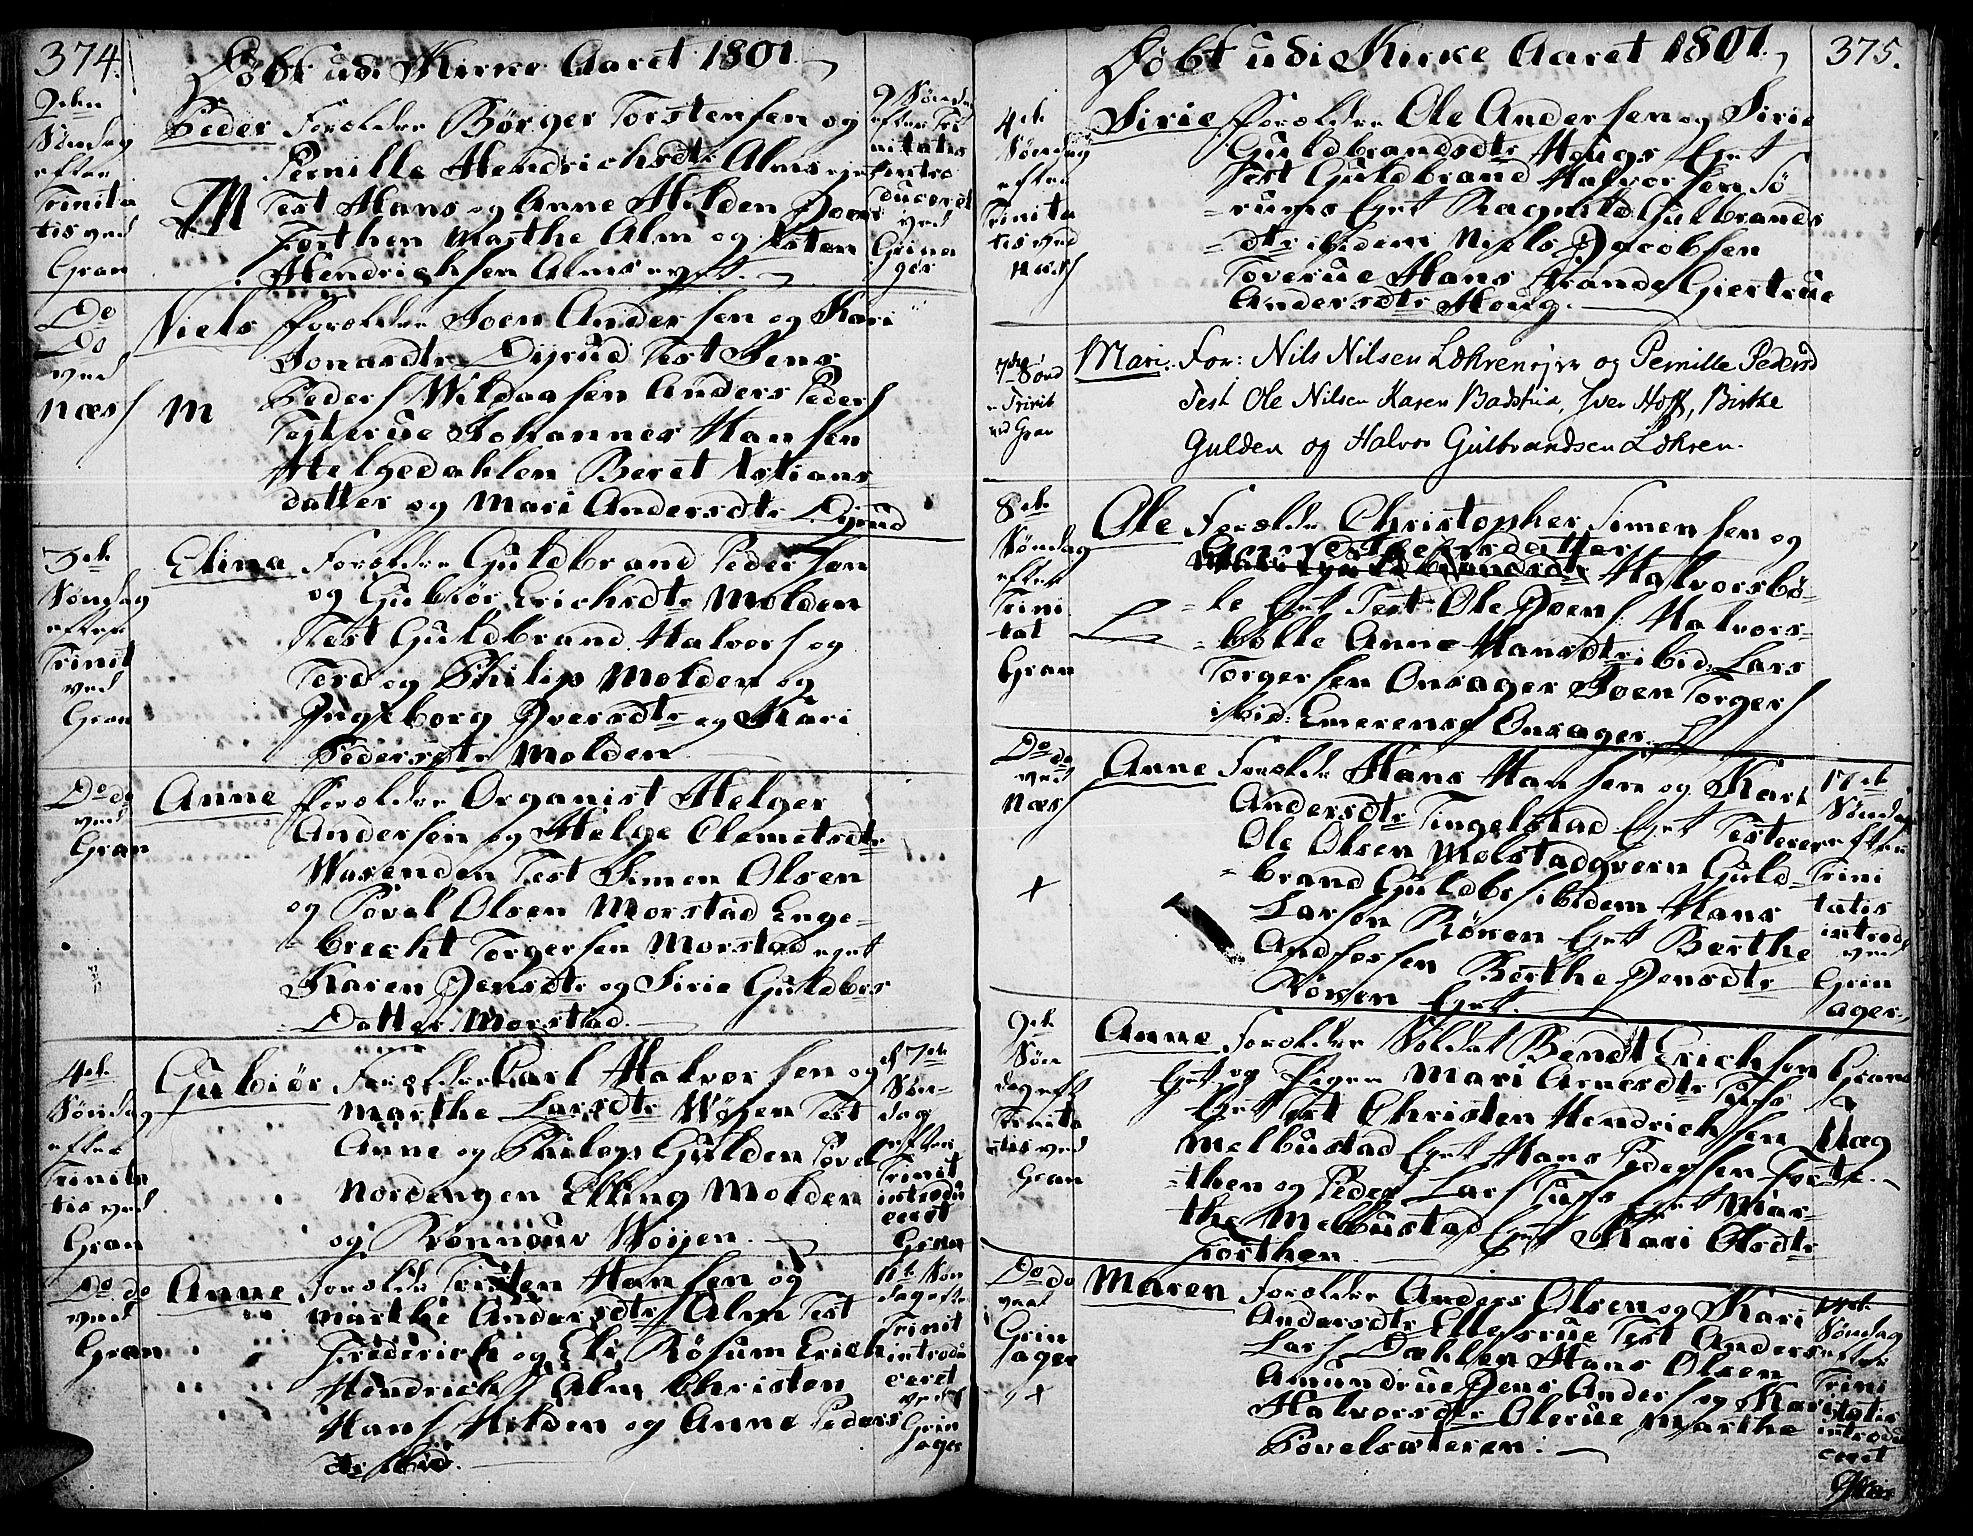 374.
Døbt udi Kirke Aaret 1801
2den
Søndag
efter
Trinita
tis ved
Gran
Peder Forældre Børger Torstensen og
Pernille Hendrichsdtr Alms eyet
M Test Hans og Anne Hilden Joen
Horthen Marthe Alm og Isten
Hendrichsen Alms eyet.
9 Sønda
efter Tri
nitatis
intro
duceret
ved
Grina
ger
Do
Do
ved
Næss
Niels Forældre Joen Andersen og Kari
Jonasdtr Dyrud Test Jens
M Peders Wildaasen Anders Peders
Testerue Johannes Hansen
Helgedahlen Beret Istians
datter og Mari Andersdtr Dyrud
3de
Søndag
efter
Trinit
ved
Gran
Elina Forældre Guldbrand Pedersen
og Gubiør Erichsdtr Molden
Test Guldbrand Halvors og
Terd og Philip Molden og
Ingeborg Iversdtr og Kari
Pedersdtr Molden
Do do
ved
Gran
Anne Forældre Organist Helger
Andersen og Helge Clemetsdtr
Wasenden Test Simen Olsen
og Povel Olsen Morstad Enge-
brecht Torgersen Morstad eyet
Karen Jensdtr og Sirie Guldbrs
Datter Morstad
4de
Søndag
efter
Trinita
tis ved
Gran
Gubiør Forældre Carl Halvorsen og
Marthe Larsdtr Wøyen Test
Anne og Philop Gulden Povel
Nordengen Elling Molden
og Rønnouv Woyen.
d 7de
Søn-
dag
efter
Trinit
introdu
ceret
Gran
Do do
ved
Gran
Anne Forældre Tosten Hansen og
Marthe Andersdtr Alm Test
Frederich og Eli Røsum Erich
Hendrichs Alm Christen
Hans Hilden og Anne Peders
dtr ibid.
11te Søn
dag efter
Trinit
introdu
ceret
ved
Grin
ager
Døbt udi Kirke Aaret 1801.
375.
4de
Søndag
efter
Trinita
tis ved
Næss
Sirie Forældre Ole Andersen og Sirie
Guldbrandsdtr Hougs Eyet
Test Guldbrand Halvorsen Sø
rums Eyet Ragnild Gulbrands
dtr ibidem Niels Jacobsen
Toverue Hans Strande Giertrue
Andersdtr Houg.
7de Sønd
e. Trinit
ved Gran
Mari. For: Nils Nilsen Løkreneyer og Pernille Pedersd
Test Ole Nilsen Karen Badstua, Iver Hoff, Birthe
Gulden og Halvor Gulbrandsen Løkren.
8de
Søndag
efter
Trini
tat
Gran
Ole Forældre Christopher Simensen og
Halvorsbø-
L le Eyet Test: Ole Joens Halvors-
bølle Anne Hansdtr ibid: Lars
Torgersen Onsager Joen Torgers
ibid: Emerense Onsager.
Do do
ved
Næss
+
Anne Forældre Hans Hansen og Kari
Andersdtr Tingelstad Eyet Testere
Ole Olsen Molstadqvern Guld-
brand Guldbrs ibidem Hans
Larsen Røken Eyet Berthe
Andfossen Berthe Jensdtr
Røken Eyet.
17de
Søndag
efter
Trini
tatis
introd
ved
Grin
ager
9de
Søn
dag eft
Trinita
tis ved
Gran
Anne Forældre Soldat Bendt Erichsen Grans
Eyet og Pigen Mari Arnesdtr Tufs
Eyet Test Christen Hendrichsen
Melbustad Eyet Hans Pedersen Hor-
then og Peder Lars Tufs Eyet Mar-
the Melbustad Eyet Kari Olsdtr
Horthen
Uæg
te.
Do do
ved
Grin
ager
+
Maren Forældre Anders Olsen og Kari
Andersdtr Ellefsrue Test Anders
Lars Dæhlen Hans Olsen
Amundrue Jens Anders og Kari
Halvorsdtr Olerue Marthe
Povelsæteren.
14de
Søndag
efter
Trini
tatis
introdu
ceret